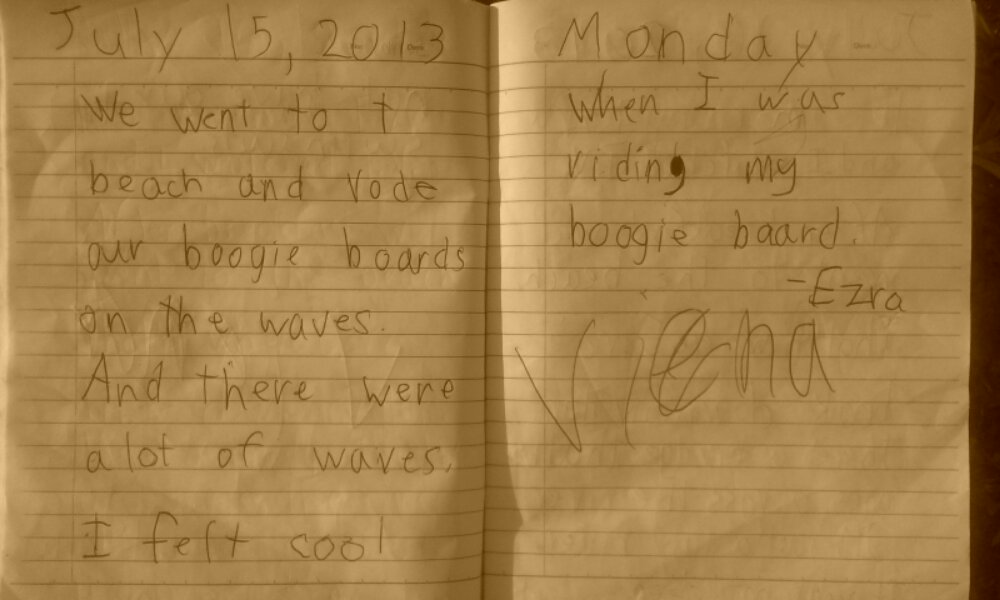 July 15, 2013
We went to t
beach and rode
our boogie boards
on the waves.
And there were
a lot of waves.
I felt cool
Monday
when I was
riding my
boogie baard.
-Ezra
Viena